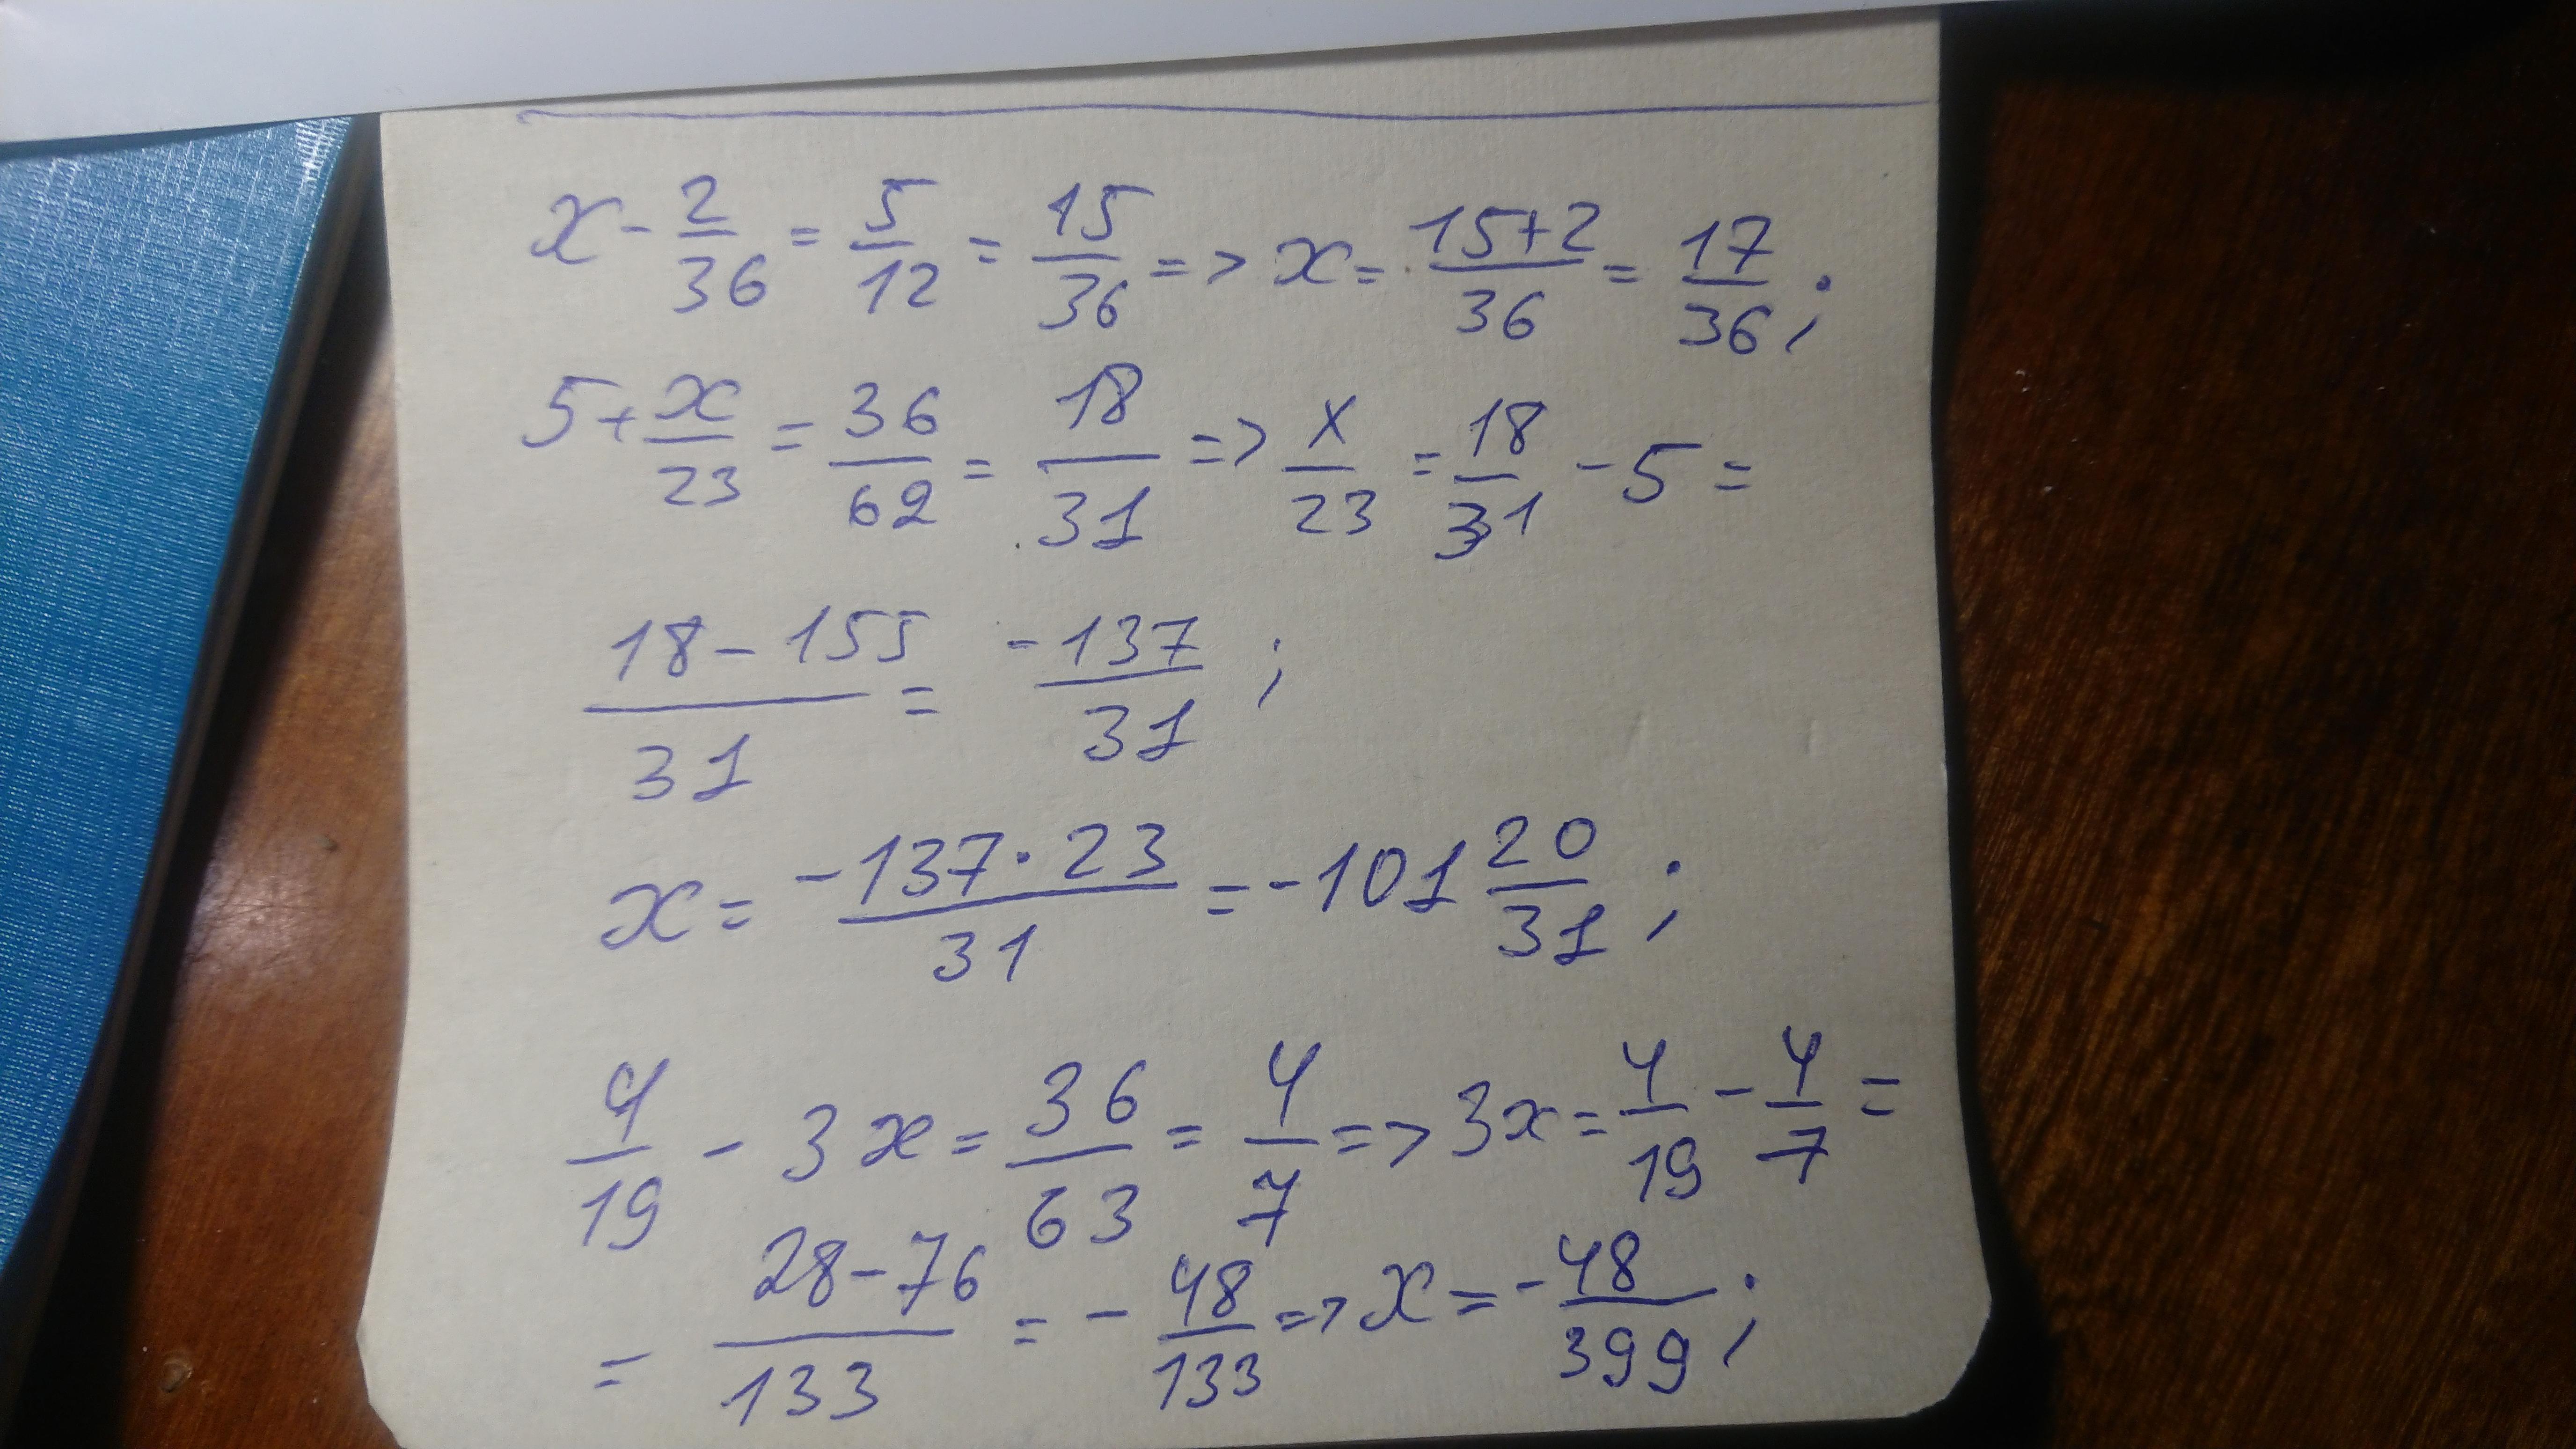 x - 2/36 = 5/12 = 15/36 => x = 15+2/36 = 17/36;
5 + x/23 = 36/62 = 18/31 => x/23 = 18/31 - 5 =
18 - 155/31 = -137/31;
x = -137·23/31 = -101 20/31;
4/19 - 3x = 36/63 = 4/7 => 3x = 4/19 - 4/7 =
= 28-76/133 = -48/133 => x = -48/399;